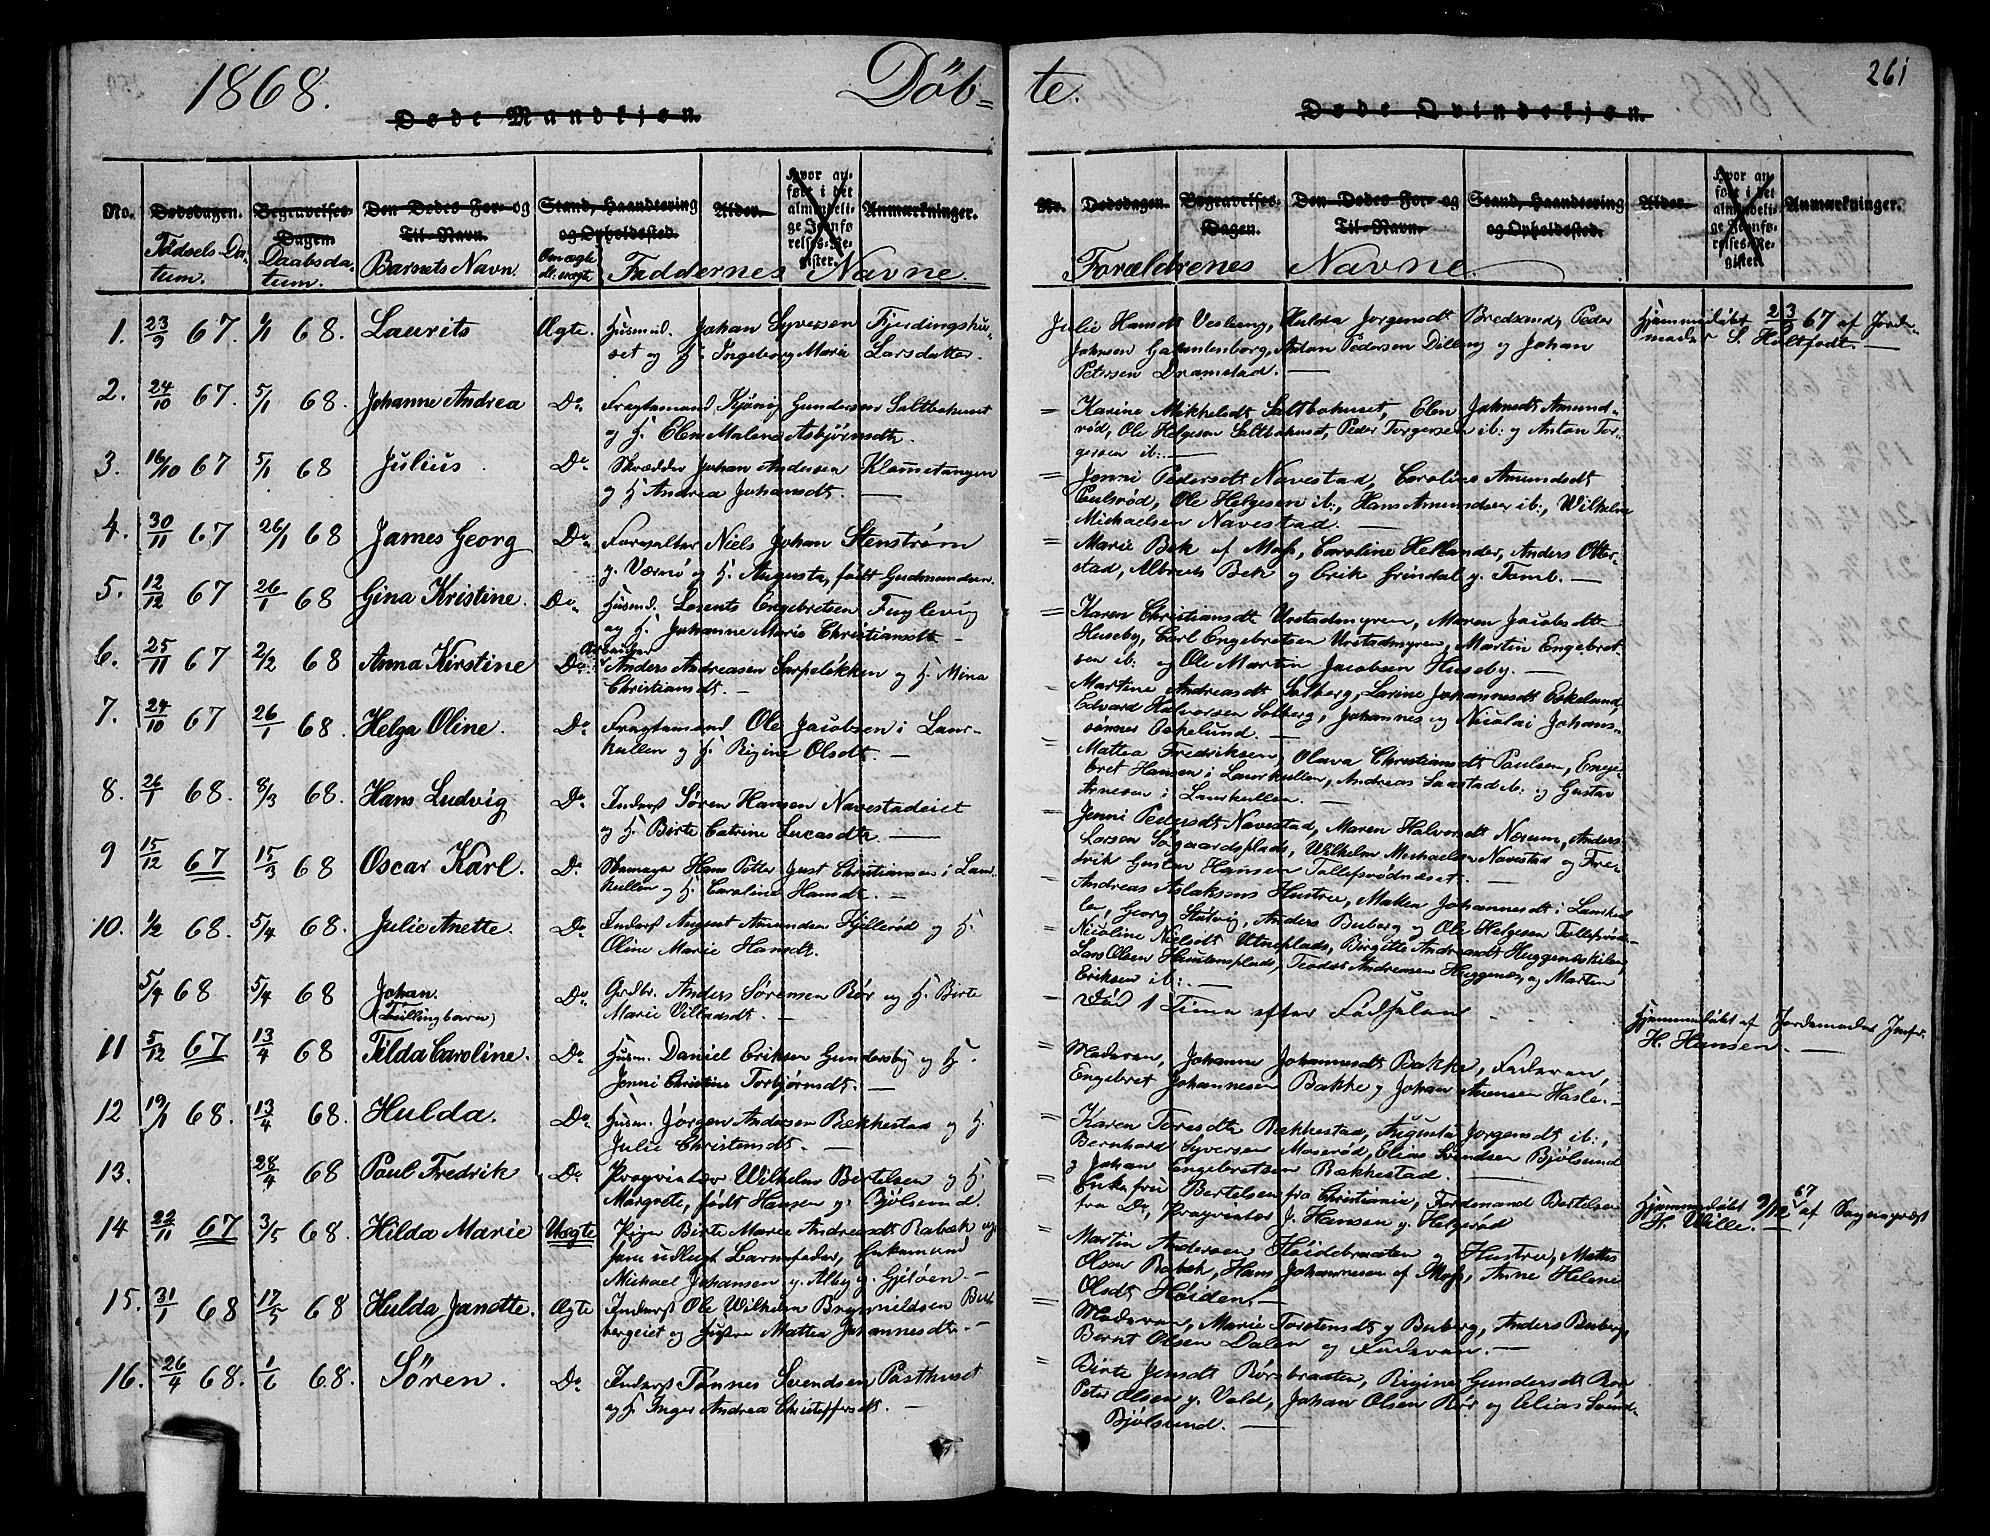 1868. Döb= te. 261
Døde Mandkjøn. Døde Qvindekjøn.
No. Dødsdagen. Begravelses-Dagen. Den Dødes For- og Til-Navn. Stand, Haandtering og Opholdsted. Alder. Hvor anført i det almindelige Jevnførelses-Register. Anmærkninger.
Fødsels Datum. Daabsdatum. Barnets Navn. Om ægte ell. uægte Faddernes Navne
No. Dødsdagen. Begravelses-Dagen. Den Dødes For- og Til-Navn. Stand, Haandtering og Opholdsted. Alder. Hvor anført i det almindelige Jevnførelses-Register. Anmærkninger.
Forældrenes Navne.
1. 23/9 67. 1/1 68. Laurits Ægte. Husmd. Johan Syversen Fjerdingshu-
set og H. Ingeborg Marie Larsdatter.
Julie Hansdt Vesleng, Hulda Jørgensdt Bredsand, Peder
Johnsen Galantenborg, Anton Pedersen Dilling og Johan
Petersen Dramstad. —
Hjemmedøbt 23/9 67 af Jorde-
moder S. Holtfodt. —
2. 24/10 67. 5/1 68. Johanne Andrea Do Fragtemand Kjønig Gundersen Saltbohuset
og H. Elen Malene Asbjørnsdtr.
= Karine Mikkelsdt Saltbohuset, Elen Johnsdt Amund-
rød, Ole Helgesen Saltbohuset, Peder Torgersen ib: og Anton Tor-
gersen ib: —
3. 16/10 67 5/1 68 Julius. Do Skrædder Johan Andersen Klommetangen
og H. Andrea Johansdt. —
= Jenni Pedersdt Navestad, Caroline Amundsdt
Paulsrød, Ole Helgesen ib:, Hans Amundsen ib:, Wilhelm
Michaelsen Navestad. —
4. 30/11 67. 26/1 68 James Georg Do Forvalter Niels Johan Stenstrøm
g. Værnø og H. Augusta, født Gudmundsen.
= Marie Bek af Moss, Caroline Hellander, Anders Otter-
stad, Albreth Bek og Erik Grindal g. Tomb. —
5. 12/12 67 26/1 68 Gina Kristine. Do. Husmd. Lorents Engebretsen Fuglevig
og H. Johanne Marie Christiansdt —
= Karen Christiansdt Unstadmyren, Maren Jacobsdt
Huseby, Carl Engebretsen Unstadmyren, Martin Engebret-
sen ib: og Ole Martin Jacobsen Huseby.
6. 25/11 67 2/2 68 Anna Kirstine Do. Arbeider
Anders Andreasen Sarpeløkken og H. Mina
Christiansdt. —
= Martine Andreasdt Solberg, Larine Johannesdt Eskelund
Edvard Halvorsen Solberg, Johannes og Nicolai Johans-
sønner Eskelund. —
7. 24/10 67 26/1 68. Helga Oline. Do Fragtemand Ole Jacobsen i Laur-
kullen og H. Regine Olsdt. —
= Mattea Fredriksen, Olava Christiansdt Paulsen, Enge-
bret Hansen i Laurkullen, Andreas Saastad ib: og Gustav
Arnesen i Laurkullen. —
8. 26/1 68. 8/3 68. Hans Ludvig Do Inderst Søren Hansen Navestadeiet
og H. Birte Catrine Lucasdtr. —
= Jenni Pedersdt Navestad, Maren Halvorsdt Norum, Anders
Larsen Søgaardsplads, Wilhelm Michaelsen Navestad og Fre-
drik Gustav Hansen Tollefsrødneset. —
9 15/12 67 15/3 68 Oscar Karl. Do. Skomager Hans Petter Just Christiansen i Laur-
kullen og H. Caroline Hansdt. —
= Andreas Aslaksens Hustru, Mattea Johannesdt i Laurkul-
len, Georg Stutvig, Anders Burberg og Ole Helgesen Tollefsrød.
10. 1/2 68. 5/4 68. Julie Anette. Do Inderst August Amundsen Fjellerød og H.
Oline Marie Hansdt.
= Nicoline Nielsdt Utneplads, Birgitte Andreasdt Huggeneskilen,
Lars Olsen Haustensplads, Teodor Andreasen Huggenes, og Marten
Eriksen ib:. —
5/4 68 5/4 68 Johan.
(Tvillingbarn) Do. Grdbr. Anders Sørensen Rør og H. Birte
Marie Villadsdt. —
= Død 1 Time efter Fødselen
11 5/12 67 13/4 68 Tilda Caroline. Do. Husm. Daniel Eriksen Gundersby og H.
Jenni Christine Torbjørnsdt. —
= Moderen, Johanne Johannesdt Bakke, Faderen,
Engebret Johannesen Bakke og Johan Arnesen Hasle. —
Hjemmedøbt af Jordemoder Jomfr.
H. Hansen. —
12 19/1 68. 13/4 68. Hulda. Do. Husm. Jørgen Andersen Bækkestad og H.
Julie Christensdt. —
= Karen Toresdtr Bækkestad, Augusta Jørgensdt ib:,
Bernhard Syversen Moserød, Elias Svendsen Bjølsund
og Johan Engebretsen Bækkestad. —
13. 28/4 68 Paul Fredrik Do Proprietær Wilhelm Bertelsen og H.
Margrete, født Hansen g. Bjølsund.
= Enkefru Bertelsen fra Christiania, Ferdinand Bertelsen
fra Do, Proprietær J. Hansen g. Helgerød
14 22/11 67 3/5 68. Hilda Marie Uægte Pigen Birte Marie Andreasdt Rabæk og
 udlagt Barnefader, Enkemand
Michael Johansen g. Alby g. Gjeløen. —
= Martin Andersen Høidebraaten og Hustru, Mattis
Olsen Rabæk, Hans Johannesen af Moss, Anne Helene
Olsdt Høiden. —
Hjemmedøbt 9/12 67 af Sogneprest
H. Wille. —
15. 31/1 68 17/5 68 Hulda Janette. Ægte Inderst Ole Wilhelm Brynnildsen Bur-
bergeiet og Hustru Mattea Johannesdtr. —
= Moderen, Marie Torstensdt g. Burberg, Anders Burberg,
Bernt Olsen Dalen og Faderen. —
16. 26/4 68. 1/6 68. Søren. Do Inderst Tønnes Svendsen Posthuset
og H. Inger Andrea Christoffersdt. —
= Birte Jensdt Rørsbraaten, Regine Gundersdt Rør
Peter Olsen g. Vold, Johan Olsen Rør og Elias Svend-
Bjølsund. —